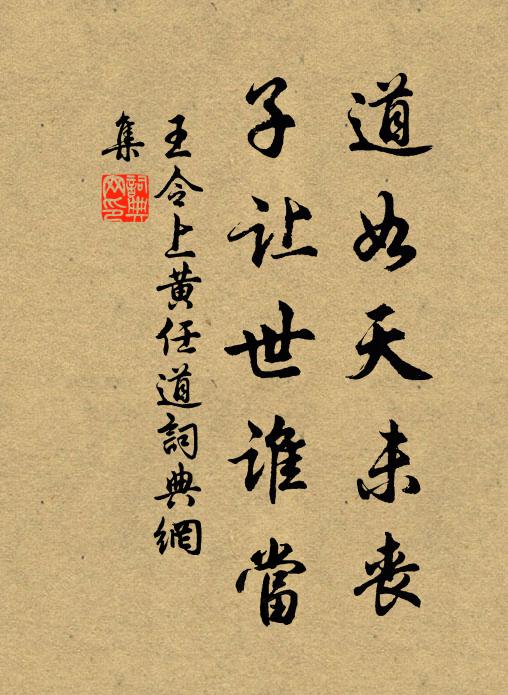 道如天未丧
子让世谁當
王令上黄任道詞典網
集
詞典网印